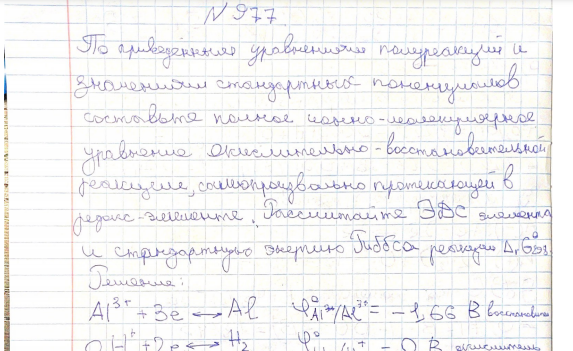 № 977
По приведённым уравнениям полуреакций и
значениям стандартных потенциалов
составьте полное ионно-молекулярное
уравнение окислительно-восстановительной
реакции, самопроизвольно протекающей в
редокс-элементе. Рассчитайте ЭДС элемента
и стандартную энергию Гиббса реакции ΔrG°298.
Решение:
Al³⁺ + 3e ⟷ Al φ°Al³⁺/Al³⁺ = -1,66 В восстановитель
H⁺ + 2e ⟷ H₂ φ° = 0 В окислитель